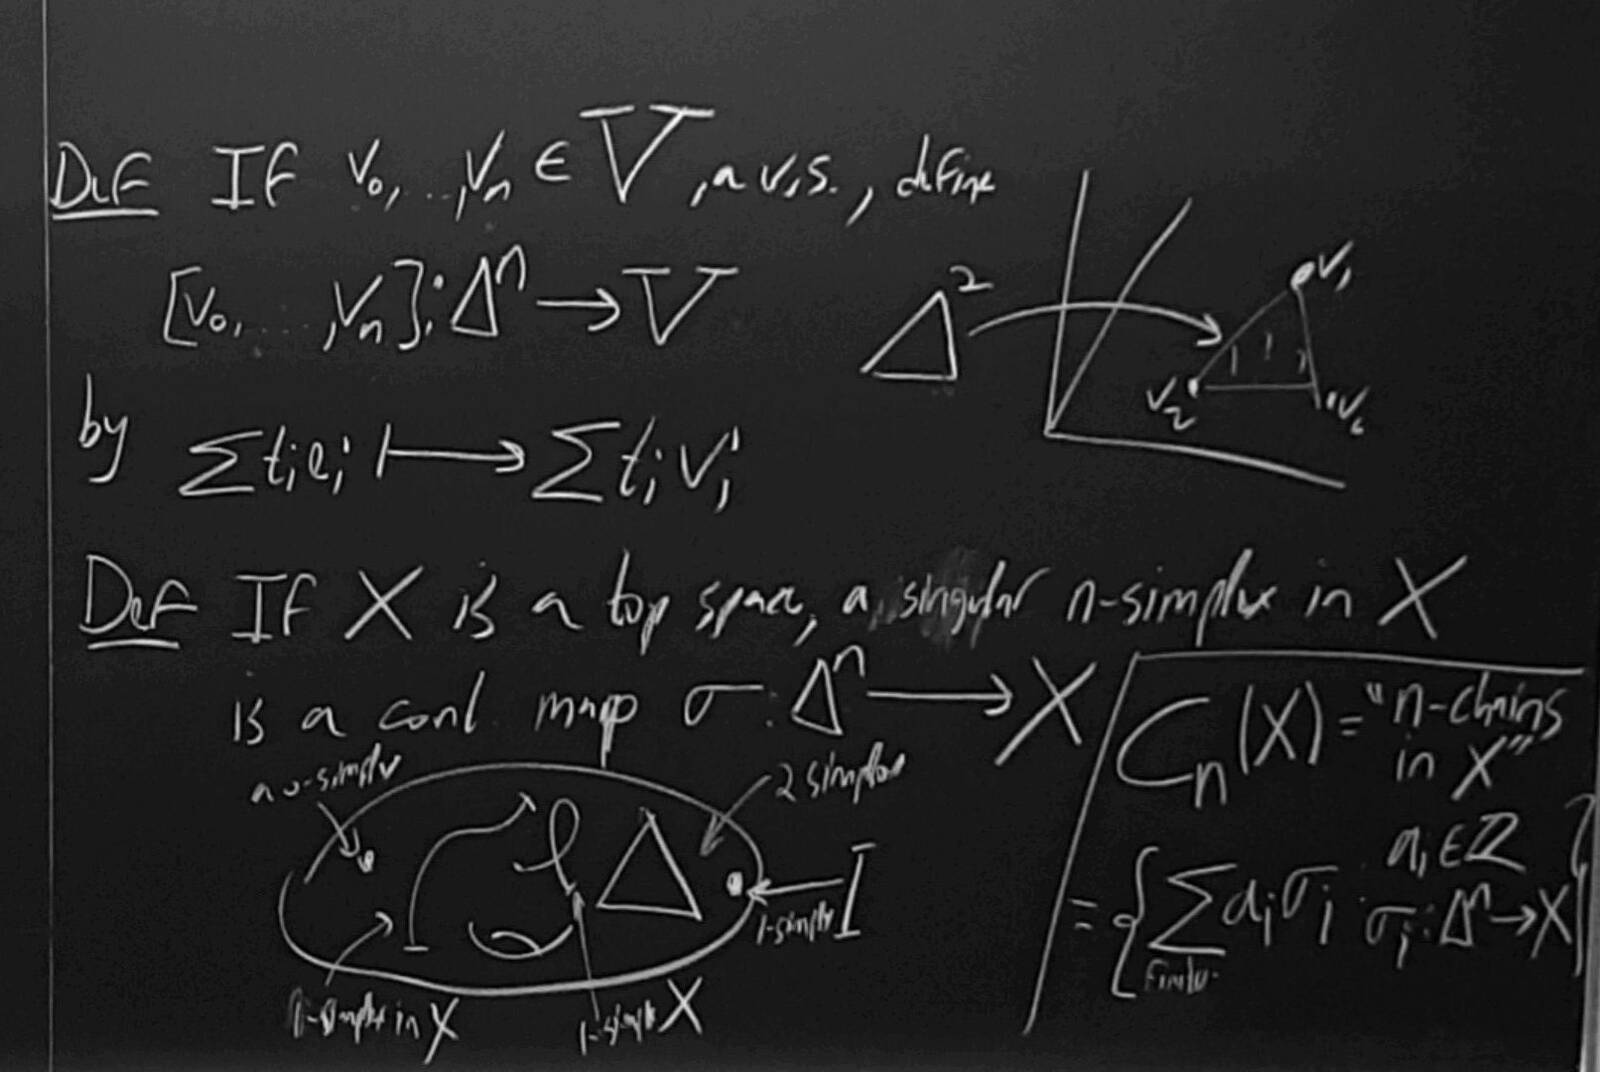 Def If v₀, ..., vₙ ∈ V, a v.s., define
[v₀, ..., vₙ]: Δⁿ → V
by Σ tᵢeᵢ ↦ Σ tᵢvᵢ
Δ²
v₁
v₂
v₀
Def If X is a top space, a singular n-simplex in X
is a cont. map σ: Δⁿ → X
a 0-simplex
2 simplex
1-simplex I
1-simplex in X
1-simplex X
Cₙ(X) = "n-chains
in X"
= { Σ aᵢσᵢ : aᵢ ∈ ℤ
σᵢ: Δⁿ → X }
finite